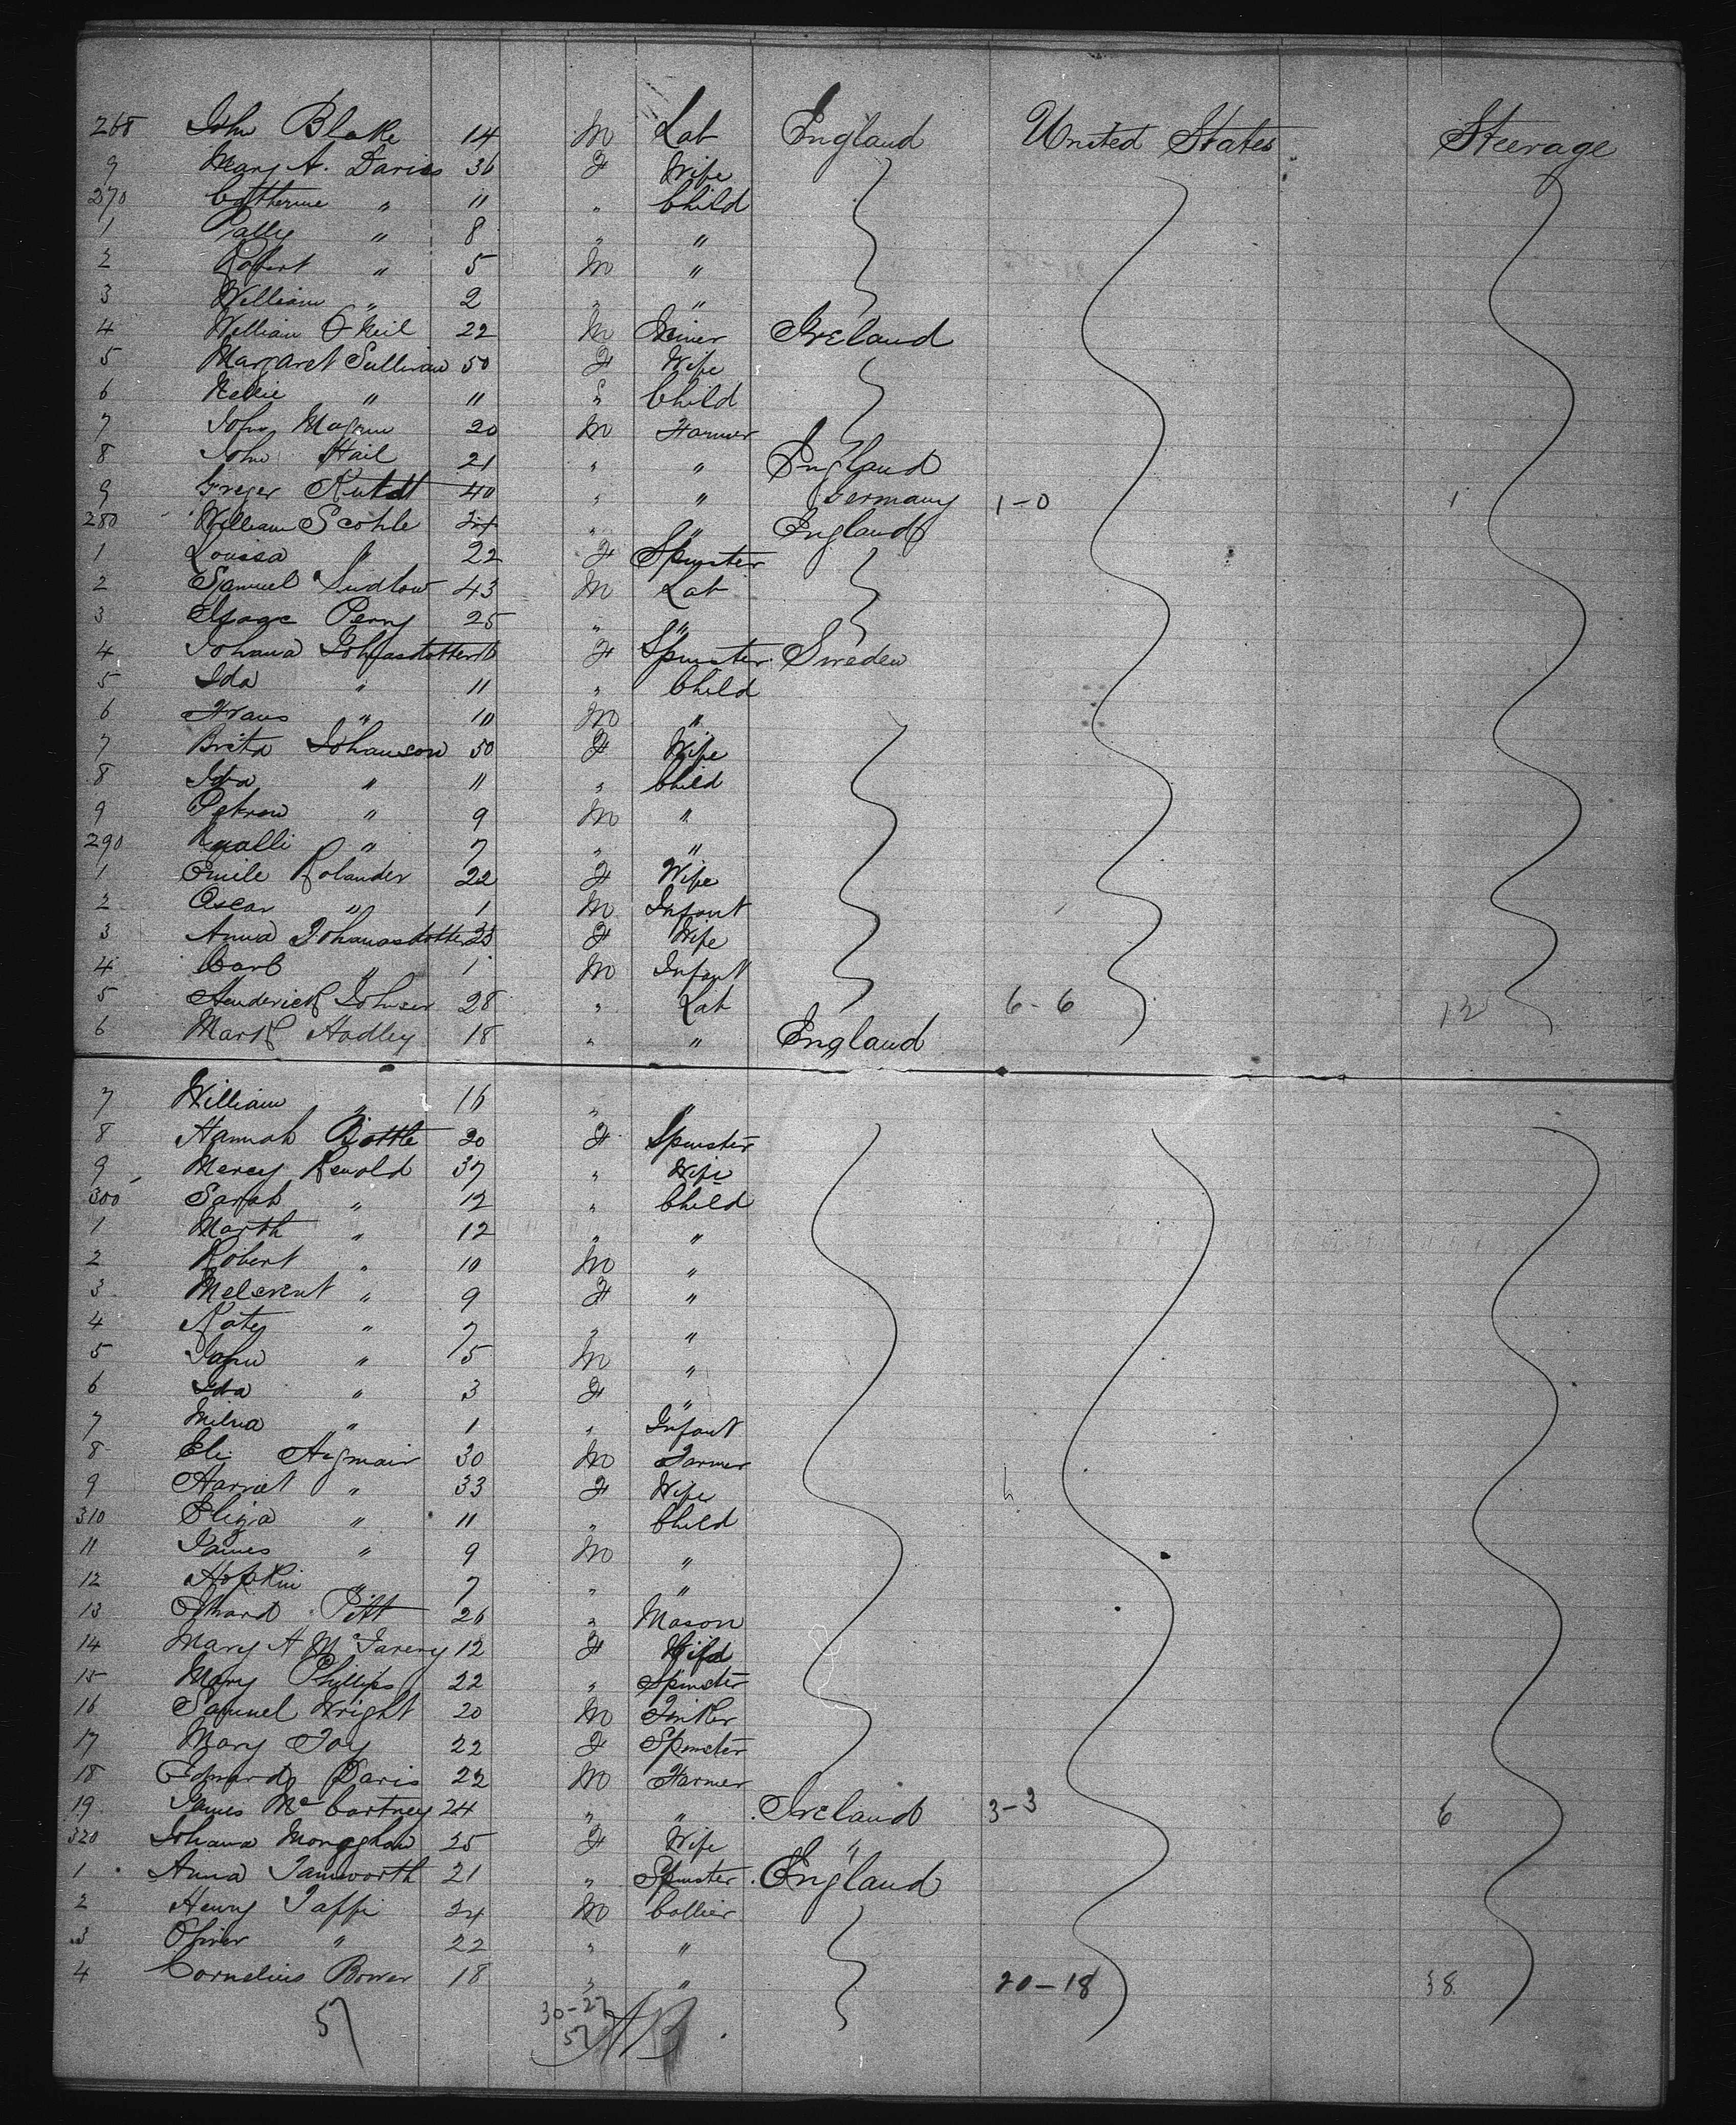 268 John Blake 14 M Lab England United States Steerage
9 Mary A. Davies 36 F Wife
270 Catherine " 11 " Child
1 Polly " 8 " "
2 Robert " 5 M "
3 William " 2 " "
4 William O'Neil 22 M Miner Ireland
5 Margaret Sullivan 50 F Wife
6 Nellie " 11 " Child
7 John 20 M Farmer
8 John Hail 21 " " England
9 40 " " Germany 1-0 1
280 William 24 " " England
1 Louisa " 22 F Spinster
2 Samuel Ludlow 43 M Lab
3 Isaac Perry 25 " "
4 Johana F Spinster Sweden
5 Ida " 11 " Child
6 Frans " 10 M "
7 Brita Johanson 50 F Wife
8 Ida " 11 " Child
9 " 9 M "
290 " 7 " "
1 Emile Rolander 22 F Wife
2 Oscar " 1 M Infant
3 Anna F Wife
4 Carl " 1 M Infant
5 Henderick Johnser 28 " Lab 6-6 12
6 Mark Hadley 18 " " England
7 William " 16 " "
8 Hannah Bottle 20 F Spinster
9 Mercy Renold 37 " Wife
300 Sarah " 12 " Child
1 Marth " 12 " "
2 Robert " 10 M "
3 " 9 F "
4 Katey " 7 " "
5 John " 5 M "
6 Ida " 3 F "
7 " 1 " Infant
8 Eli 30 M Farmer
9 Harriet " 33 F Wife
310 Eliza " 11 " Child
11 James " 9 M "
12 Hopkin " 7 " "
13 Pitt 26 " Mason
14 Mary A 12 F
15 Mary Phillips 22 " Spinster
16 Samuel Wright 20 M Tinker
17 Mary Foy 22 F Spinster
18 Edward Davis 22 M Farmer
19 James McCartney 24 " " Ireland 3-3 6
320 Johana 25 F Wife "
1 Anna Tamworth 21 " Spinster England
2 Henry 24 M Collier
3 Oliver " 22 " "
4 Cornelius Bower 18 " " 20-18 38
57 30-27
57